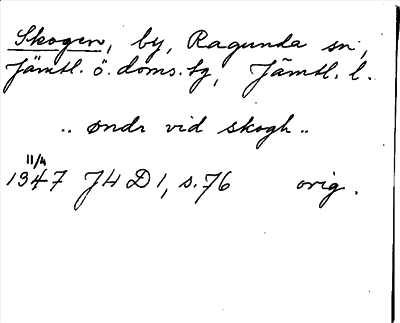 Skogen, by, Ragunda sn,
Jämtl. ö. doms.tg, Jämtl. l.
.. øndr vid skogh ..
11/4
1347 JHD 1, s. 76 orig.